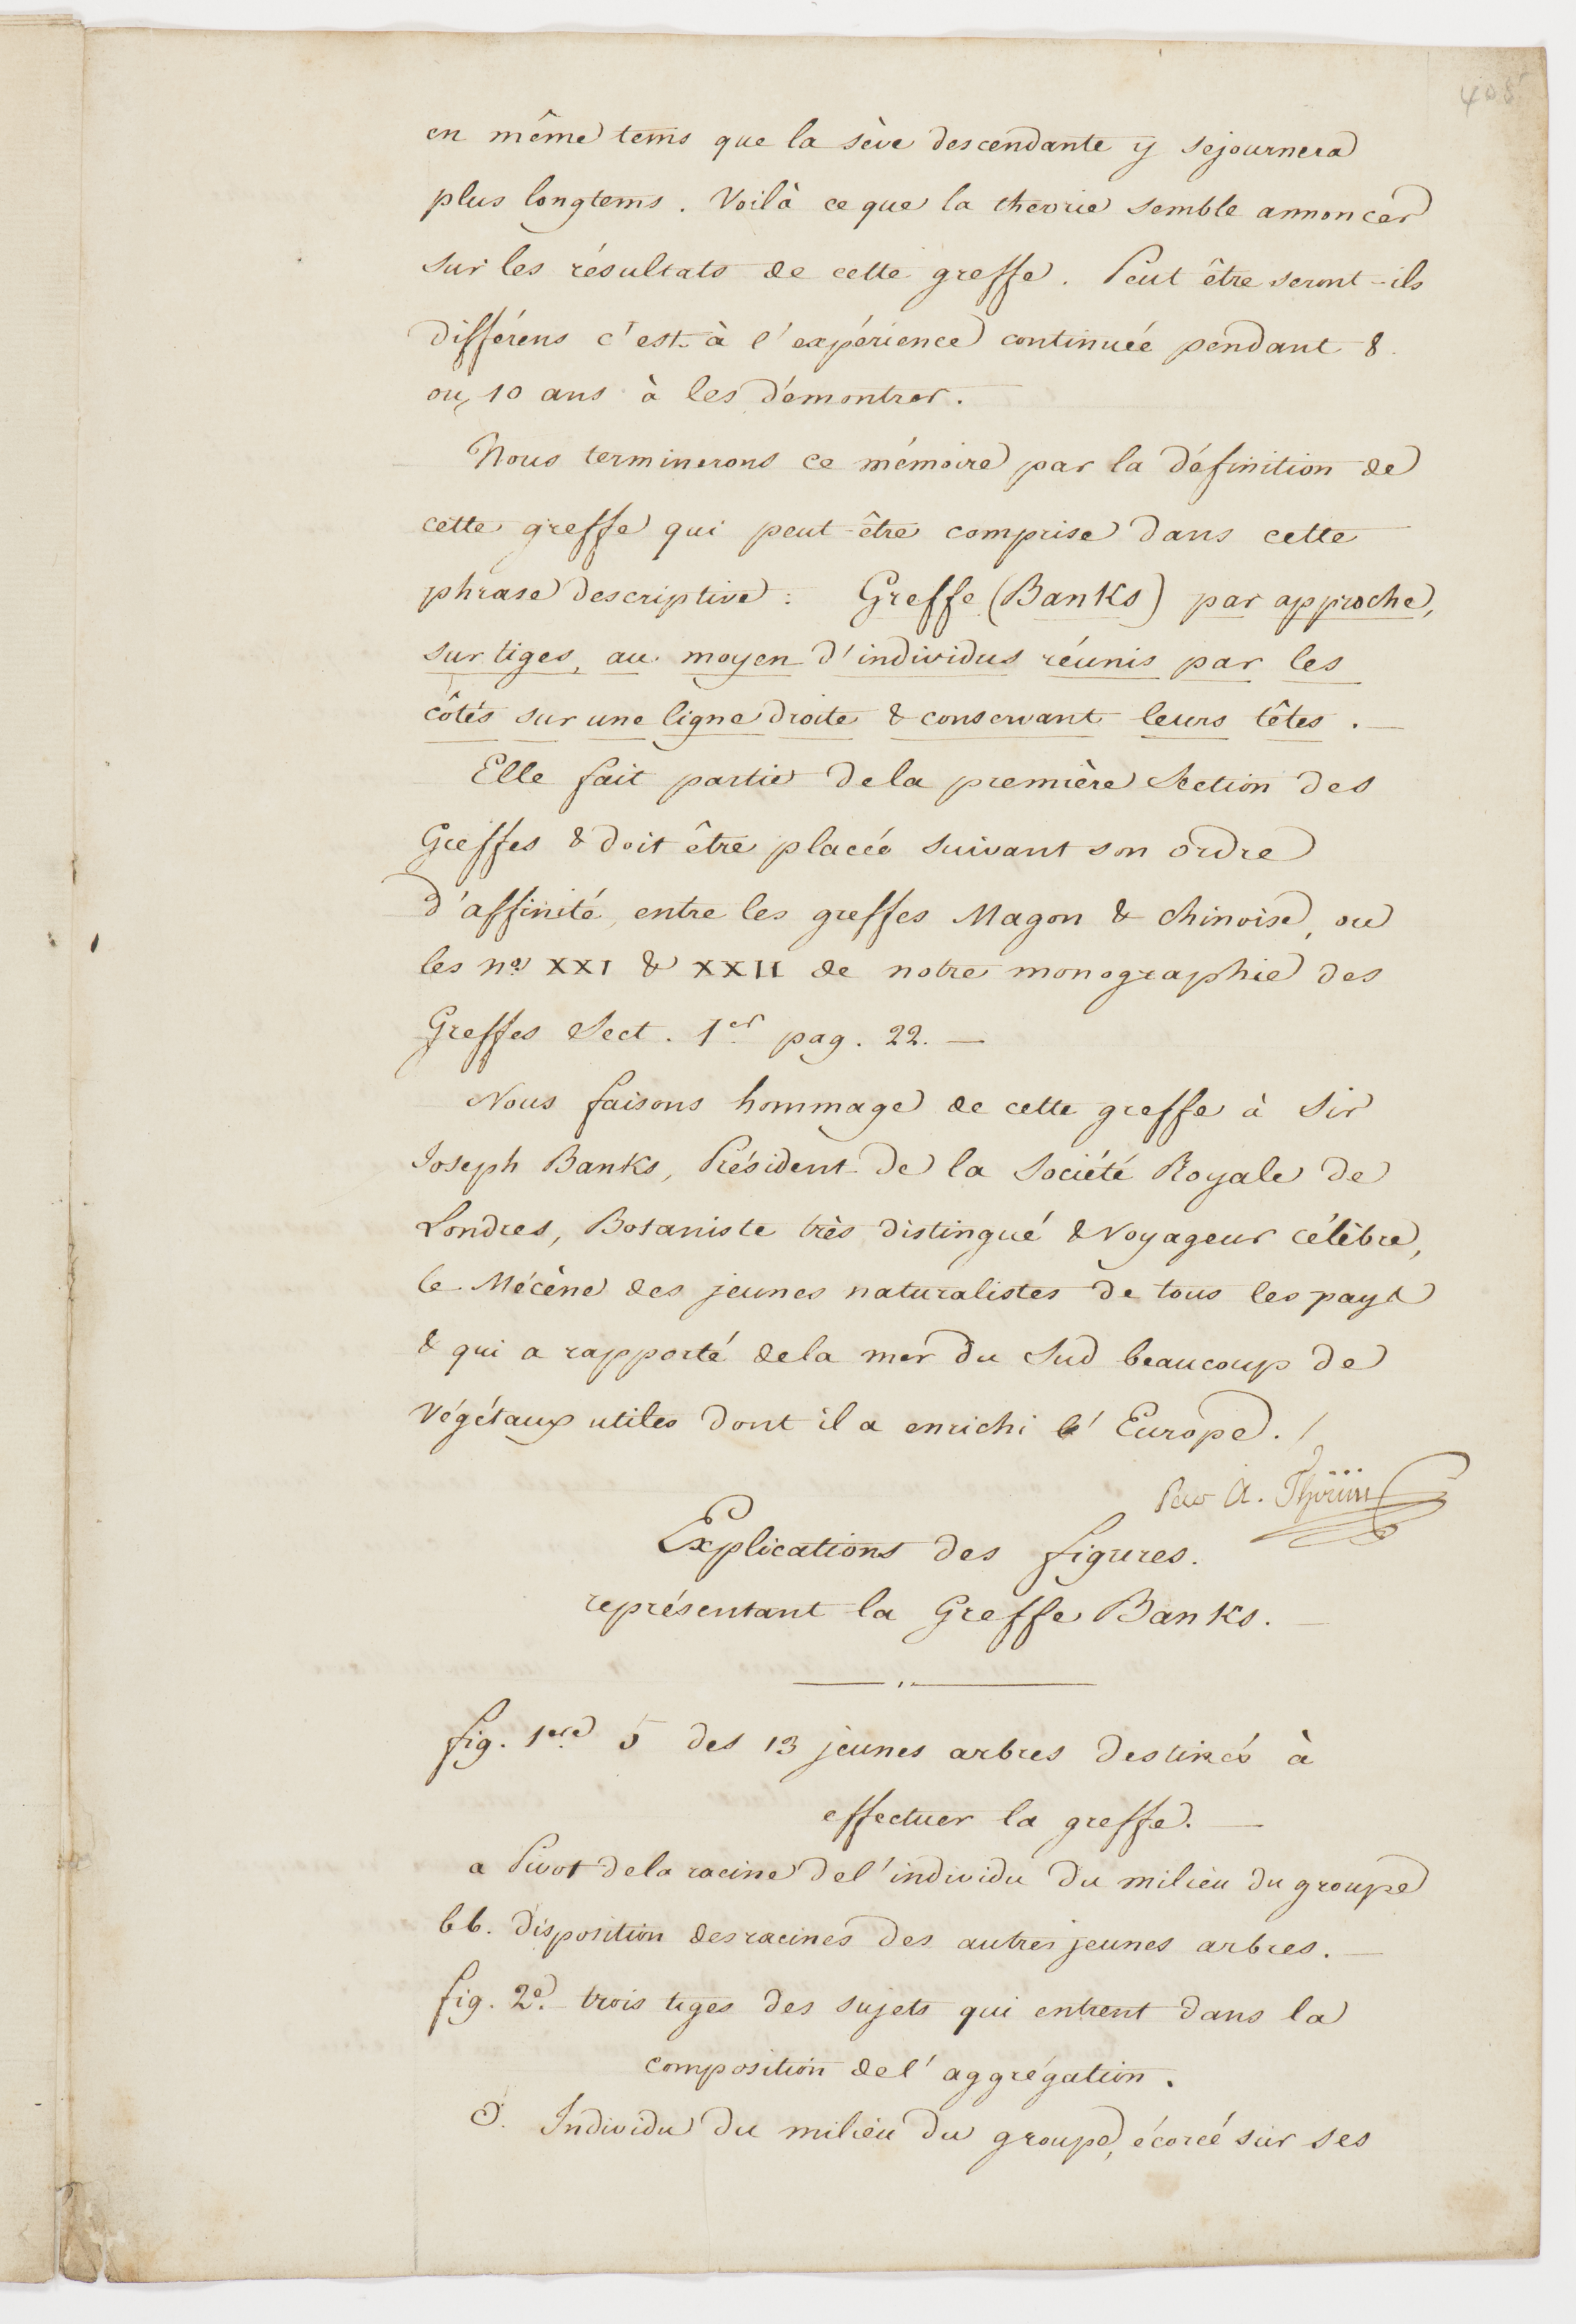 408
en même tems que la sève descendante y sejournera
plus longtems. Voilà ce que la theorie semble annoncer
sur les résultats de cette greffe. Peut être seront-ils
différens c'est à l'expérience continuée pendant 8
ou 10 ans à les démontrer.
Nous terminerons ce mémoire par la définition de
cette greffe qui peut-être comprise dans cette
phrase descriptive: Greffe (Banks) par approche,
sur tiges, au moyen d'individus réunis par les
côtés sur une ligne droite & conservant leurs têtes.
Elle fait partie de la première Section des
Greffes & doit être placée suivant son ordre
d'affinité, entre les greffes Magon & chinoise, ou
les nos XXI & XXII de notre monographie des
Greffes Sect. 1er pag. 22. —
Nous faisons hommage de cette greffe à Sir
Joseph Banks, Président de la Société Royale de
Londres, Botaniste très distingué & Voyageur célèbre,
le Mécène des jeunes naturalistes de tous les pays
& qui a rapporté de la mer du Sud beaucoup de
Végétaux utiles dont il a enrichi l'Europe. /
Par A. Thoüin
Explications des figures.
représentant la Greffe Banks.
fig. 1ere 5 des 13 jeunes arbres destinés à
effectuer la greffe. —
a Pivot de la racine de l'individu du milieu du groupe
bb. disposition des racines des autres jeunes arbres. —
fig. 2e. trois tiges des sujets qui entrent dans la
composition de l'aggrégation.
d. Individu du milieu du groupe, écorcé sur ses